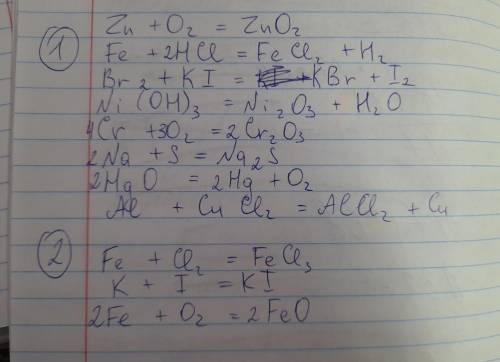 ① Zn + O₂ = ZnO₂
Fe + 2HCl = FeCl₂ + H₂
Br₂ + KI = KBr + I₂
Ni(OH)₃ = Ni₂O₃ + H₂O
4Cr + 3O₂ = 2Cr₂O₃
2Na + S = Na₂S
2HgO = 2Hg + O₂
Al + CuCl₂ = AlCl₂ + Cu
② Fe + Cl₂ = FeCl₃
K + I = KI
2Fe + O₂ = 2FeO